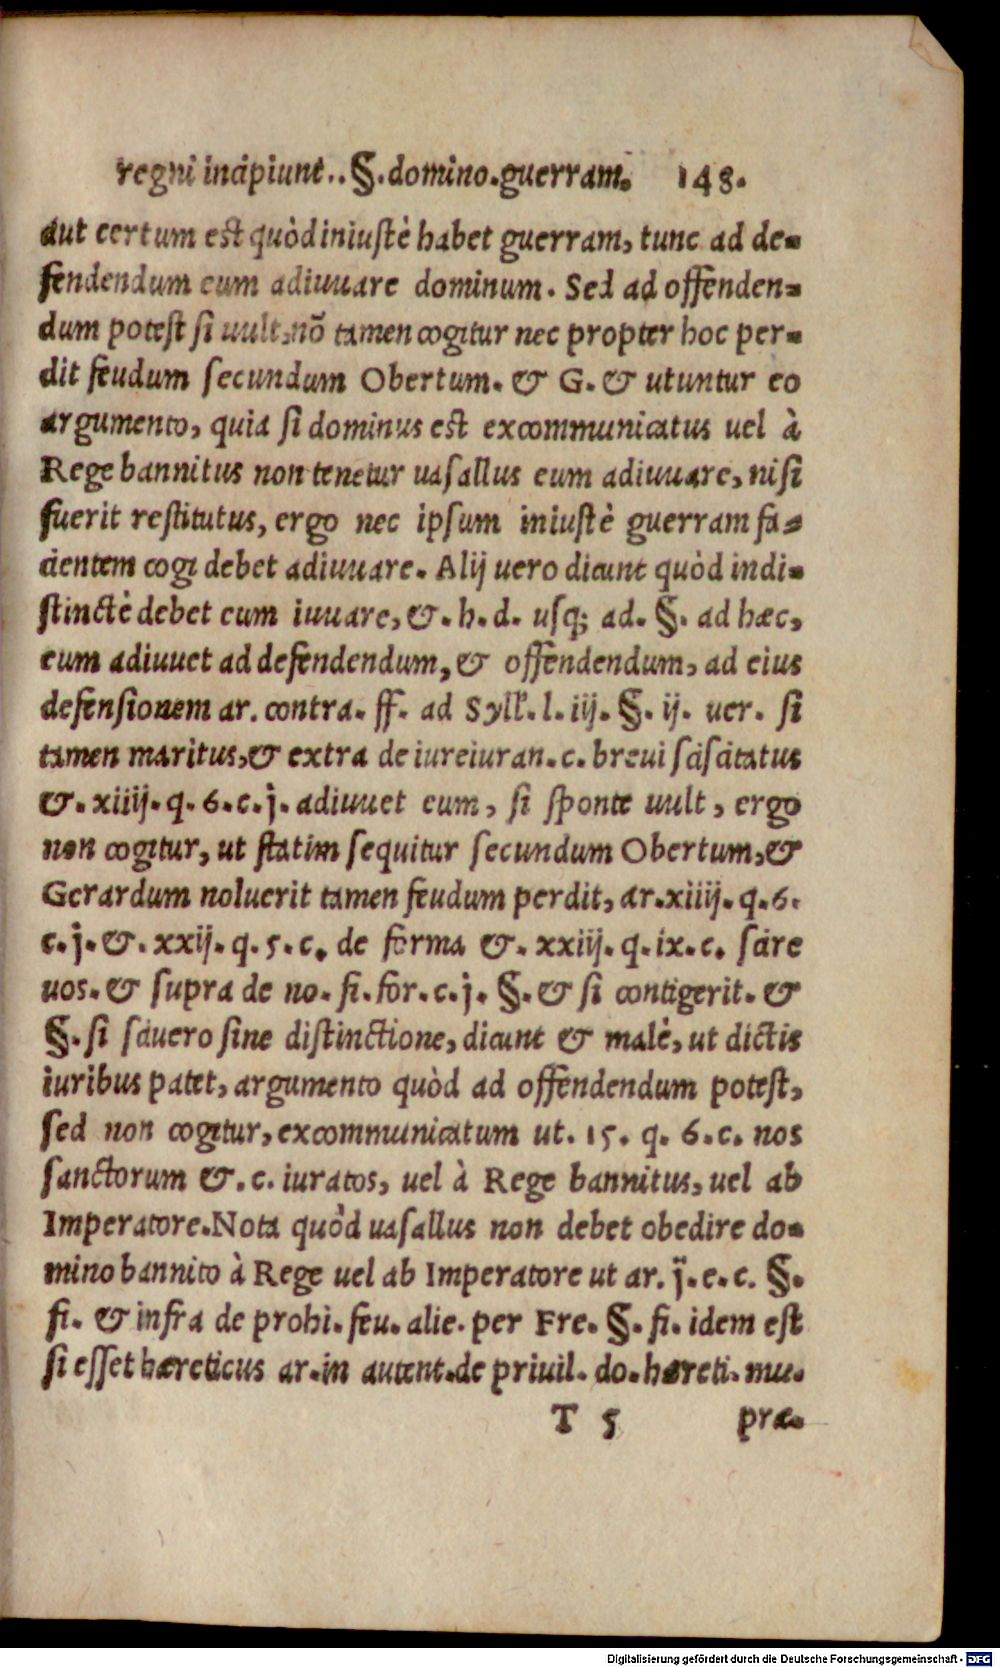 regni incipiunt..§.domino.guerram. 148.
aut certum est quòd iniustè habet guerram, tunc ad de-
fendendum eum adiuuare dominum. Sed ad offenden-
dum potest si uult,nõ tamen cogitur nec propter hoc per-
dit feudum secundum Obertum. & G. & utuntur eo
argumento, quia si dominus est excommunicatus uel à
Rege bannitus non tenetur uasallus eum adiuuare, nisi
fuerit restitutus, ergo nec ipsum iniustè guerram fa-
cientem cogi debet adiuuare. Alij uero dicunt quòd indi-
stinctè debet eum iuuare, &. h. d. usq; ad. §. ad hæc,
eum adiuuet ad defendendum, & offendendum, ad eius
defensionem ar. contra. ff. ad Syll'. l. iij. §. ij. uer. si
tamen maritus,& extra de iureiuran.c. breui sciscitatus
&. xiiij. q. 6. c. j. adiuuet eum, si sponte uult, ergo
non cogitur, ut statim sequitur secundum Obertum,&
Gerardum noluerit tamen feudum perdit, ar.xiiij. q.6.
c. j. &. xxij. q. 5. c. de forma &. xxiij. q. ix. c. scire
uos. & supra de no. fi. for. c. j. §. & si contigerit. &
§. si scivero sine distinctione, dicunt & malè, ut dictis
iuribus patet, argumento quòd ad offendendum potest,
sed non cogitur, excommunicatum ut. 15. q. 6. c. nos
sanctorum &. c. iuratos, uel à Rege bannitus, uel ab
Imperatore. Nota quòd uasallus non debet obedire do-
mino bannito à Rege uel ab Imperatore ut ar. j. e. c. §.
fi. & infra de prohi. feu. alie. per Fre. §. fi. idem est
si esset hæreticus ar.in autent.de priuil. do. hæreti. mu.
T 5 præ-
Digitalisierung gefördert durch die Deutsche Forschungsgemeinschaft - DFG